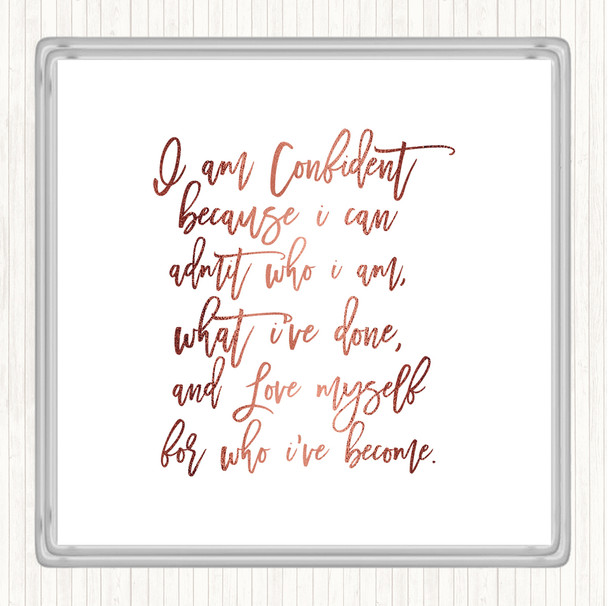 I am Confident
because i can
admit who i am,
what i've done,
and Love myself
for who i've become.